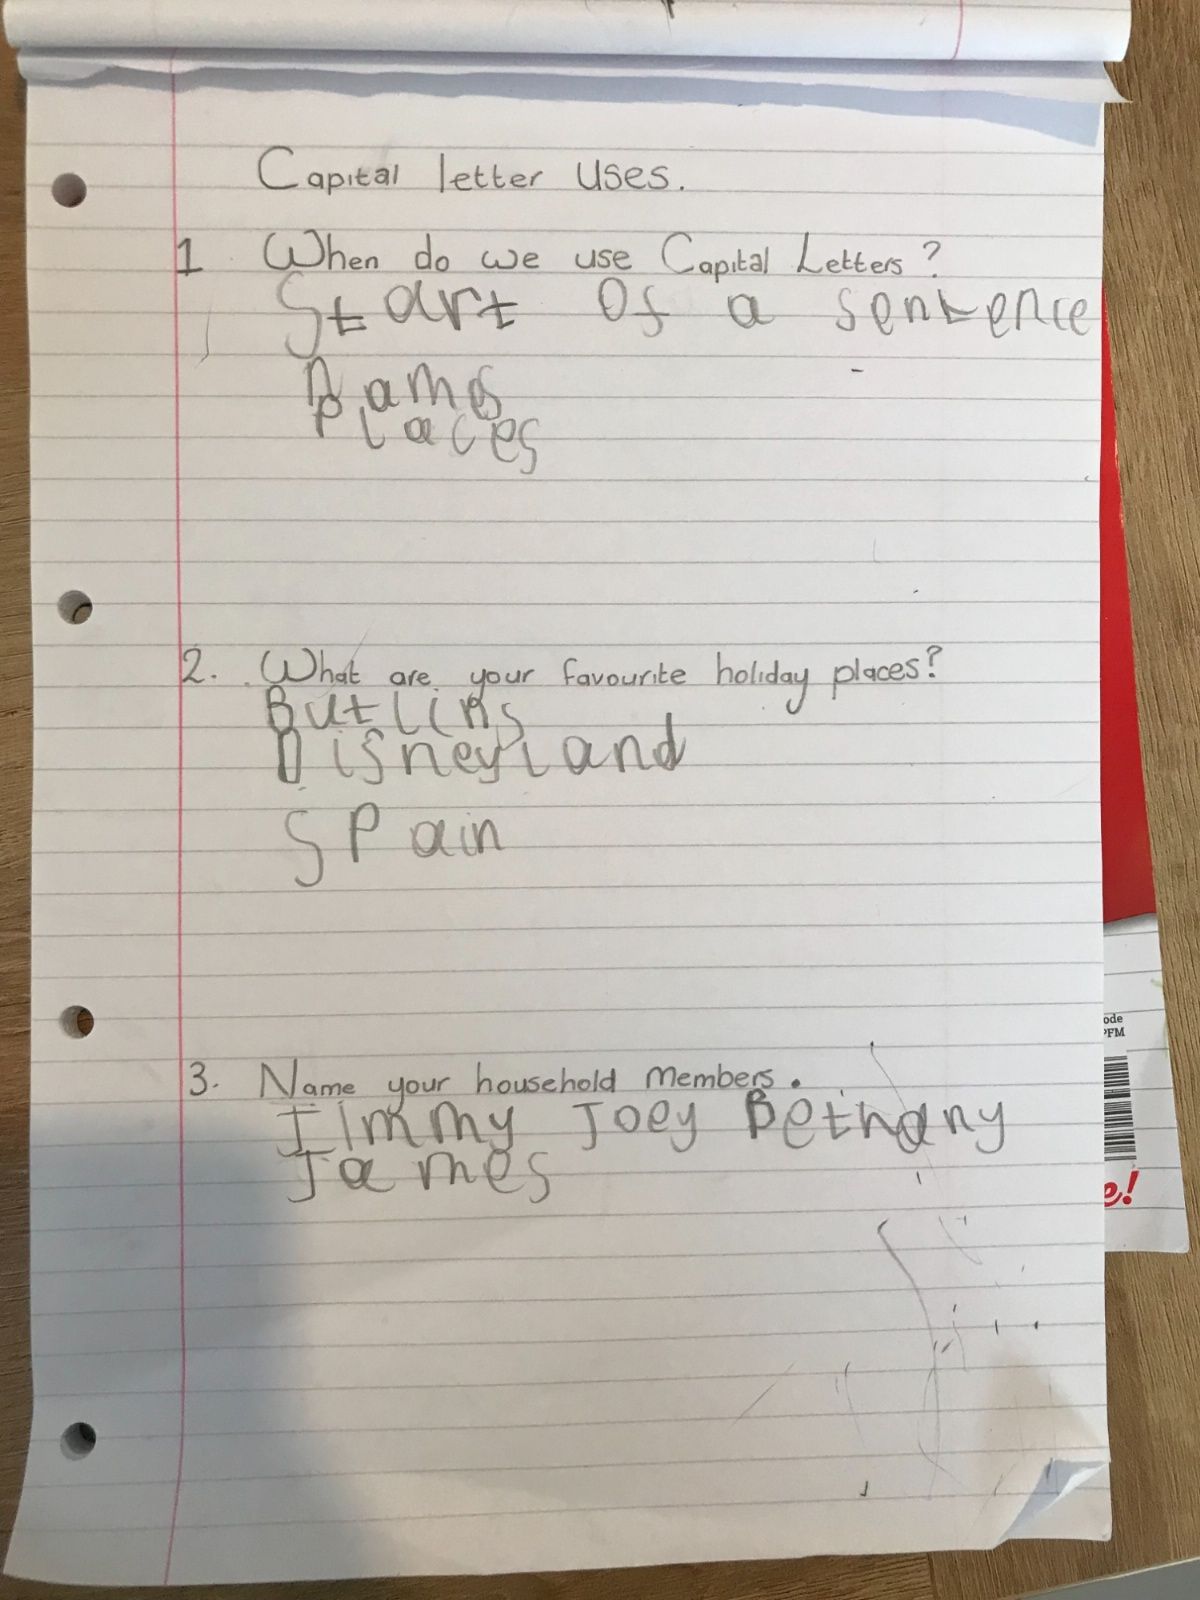 Capital letter uses.
1 When do we use Capital Letters?
Start Of a sentence
Names
Places
2. What are your favourite holiday places?
Butlins
Disneyland
SPain
3. Name your household members.
Jimmy Joey Bethany
James
ode
PFM
e!